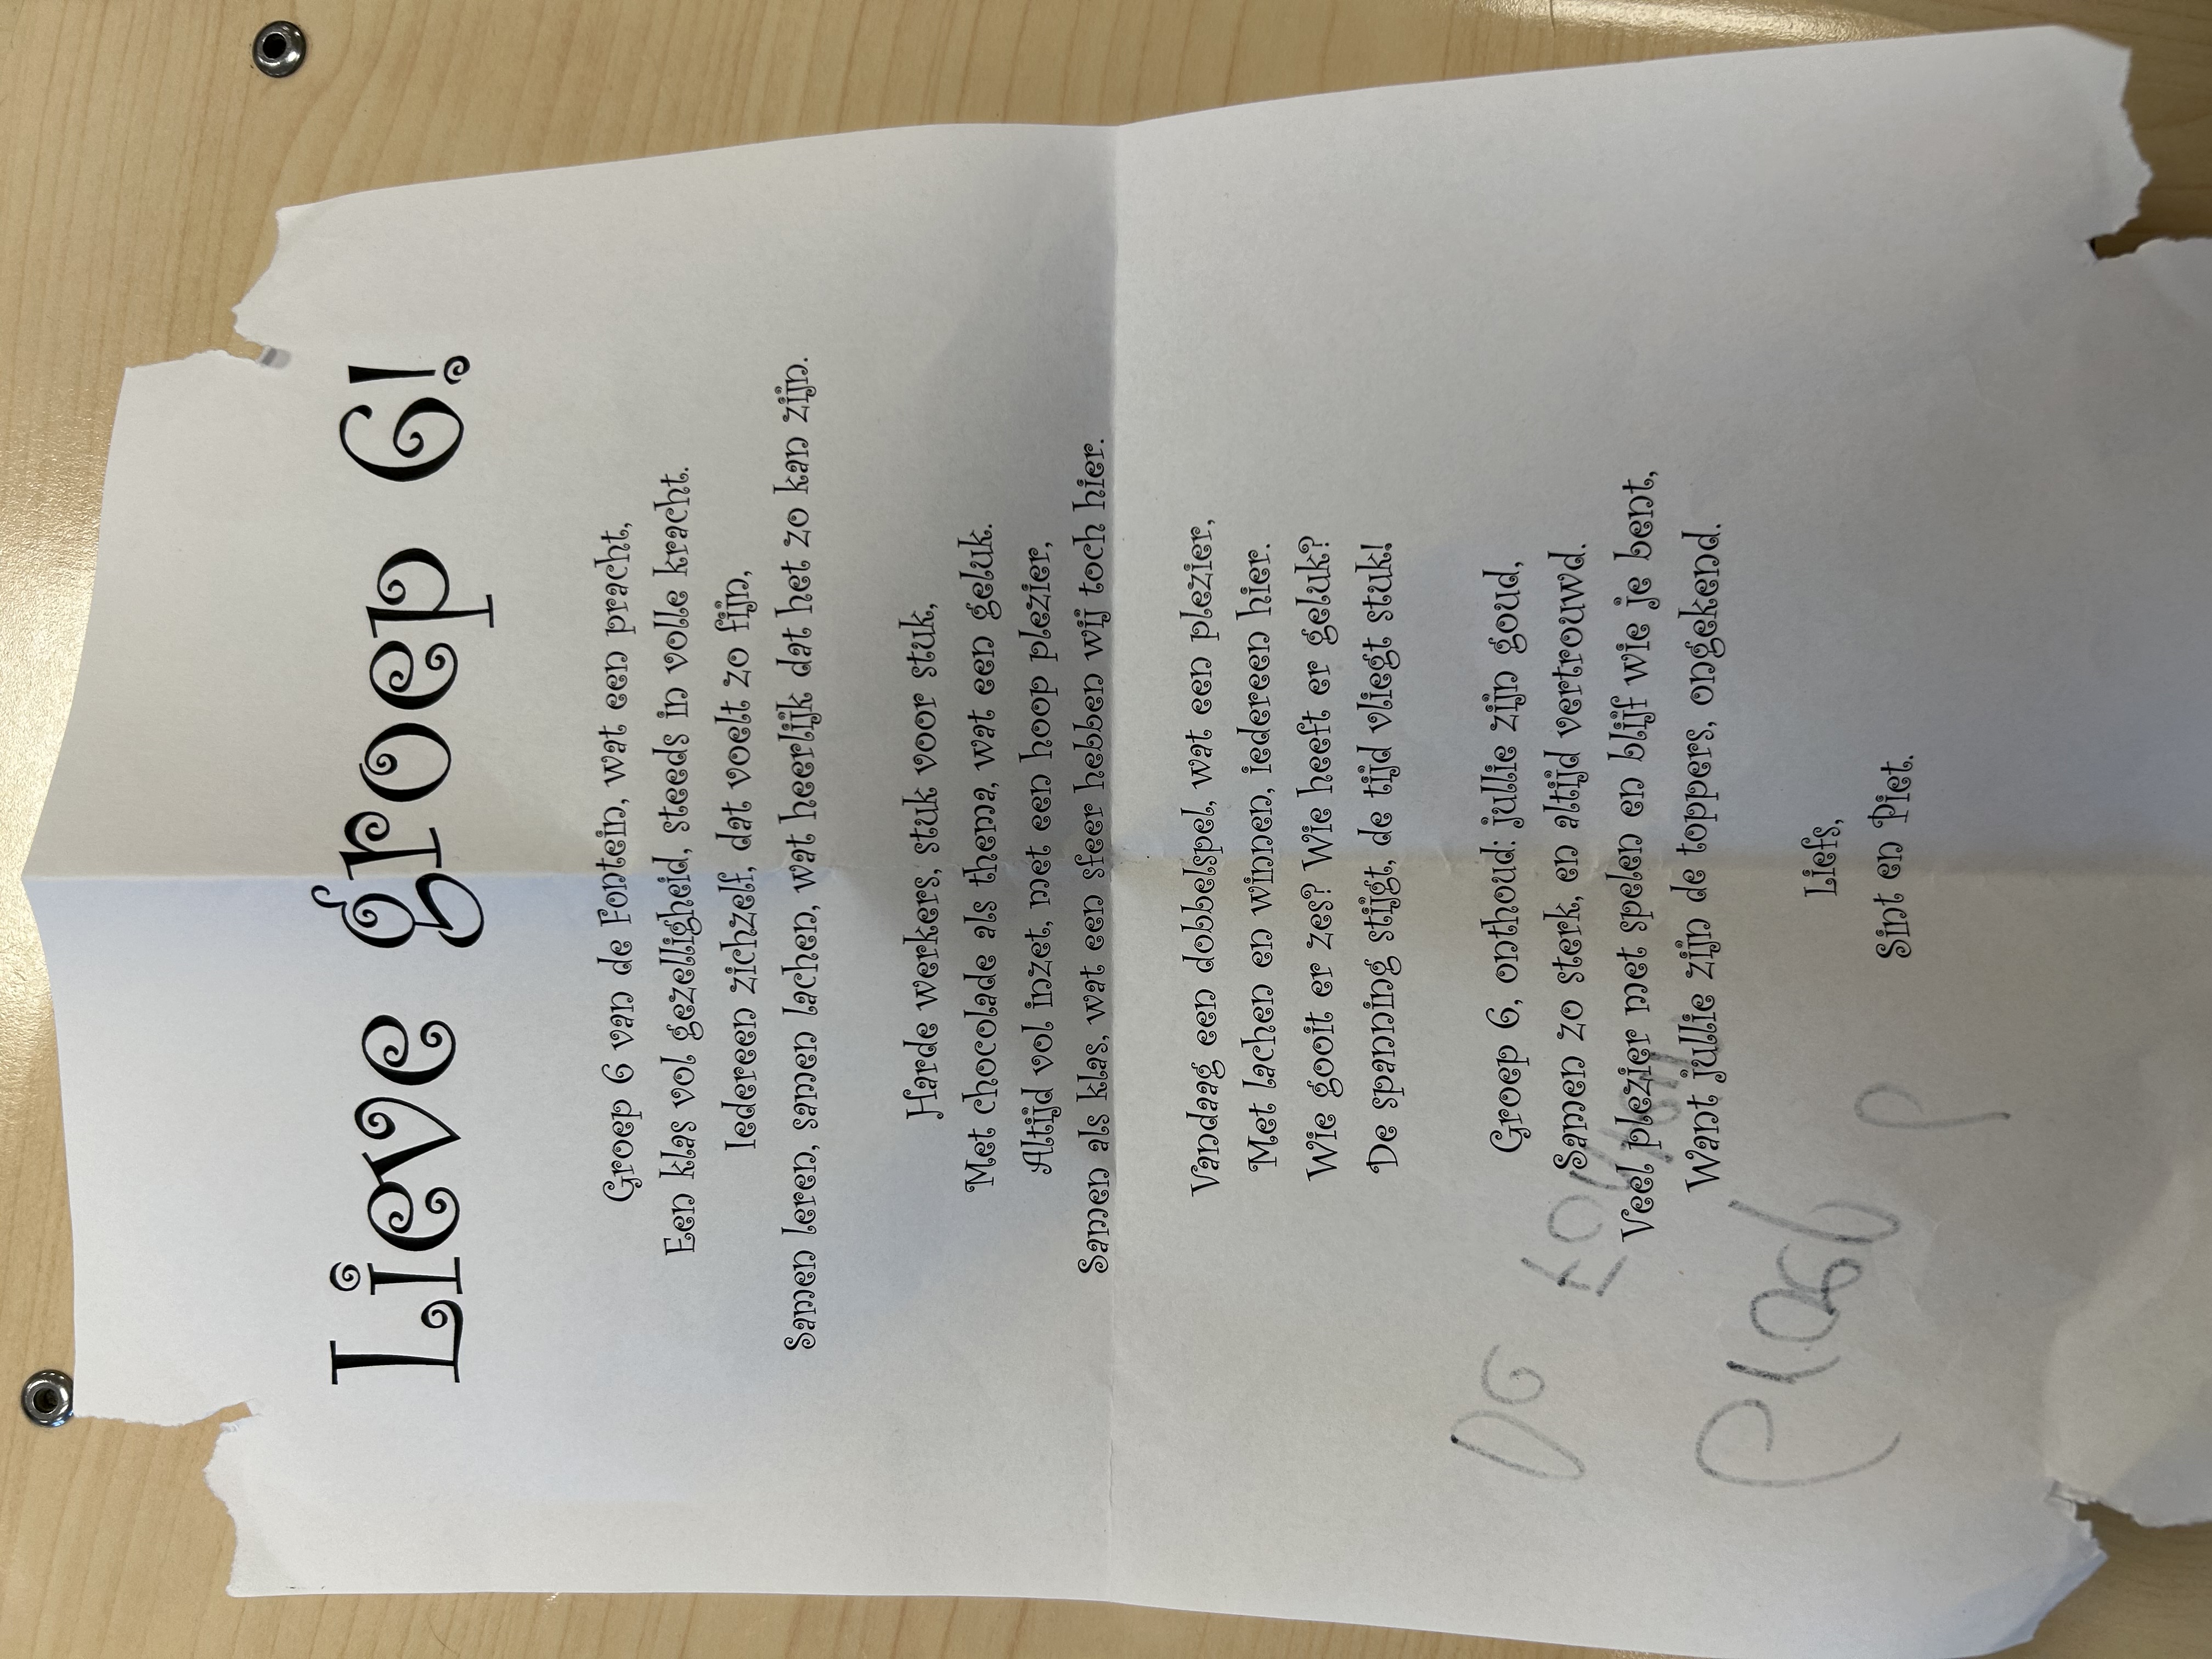 Lieve groep 6!
Groep 6 van de Fontein, wat een pracht,
Een klas vol gezelligheid, steeds in volle kracht.
Iedereen zichzelf, dat voelt zo fijn,
Samen leren, samen lachen, wat heerlijk dat het zo kan zijn.
Harde werkers, stuk voor stuk,
Met chocolade als thema, wat een geluk.
Altijd vol inzet, met een hoop plezier,
Samen als klas, wat een sfeer hebben wij toch hier.
Vandaag een dobbelspel, wat een plezier,
Met lachen en winnen, iedereen hier.
Wie gooit er zes? Wie heeft er geluk?
De spanning stijgt, de tijd vliegt stuk!
Groep 6, onthoud: jullie zijn goud,
Samen zo sterk, en altijd vertrouwd.
Veel plezier met spelen en blijf wie je bent,
Want jullie zijn de toppers, ongekend.
Liefs,
Sint en Piet.